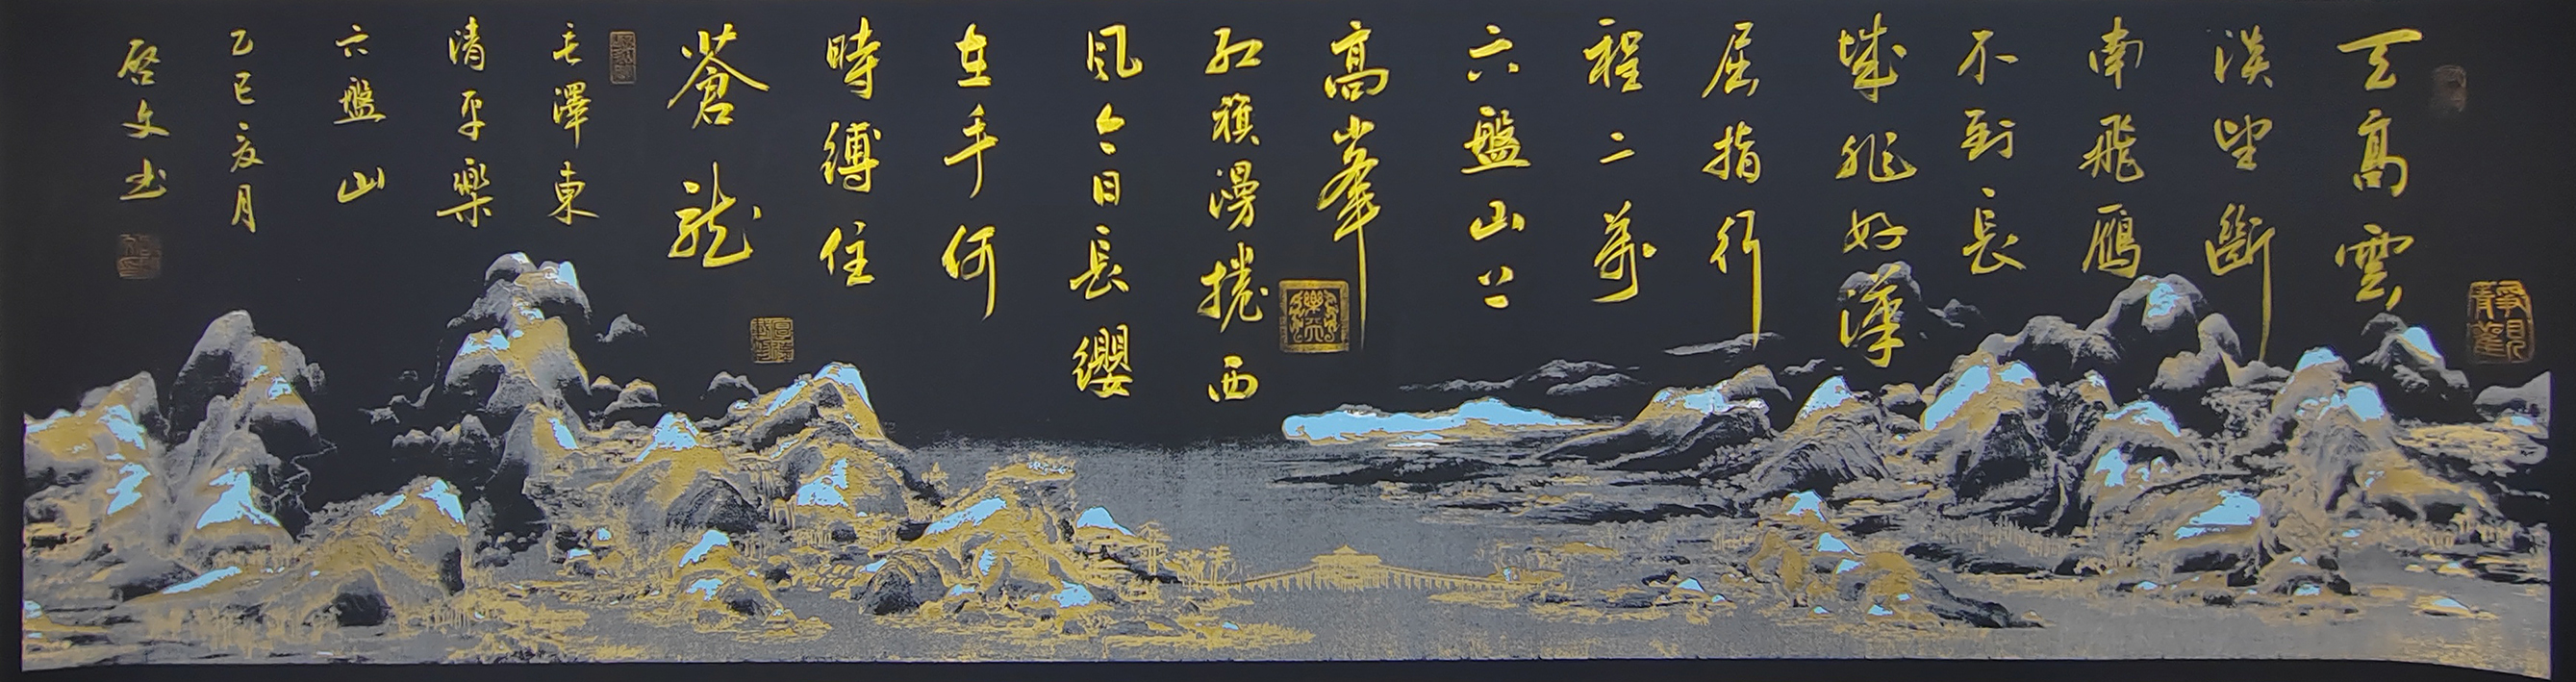 天高雲
淡望斷
南飛鴈
不到長
城非好漢
屈指行
程二萬
六盤山上
高峯
紅旗漫捲西
風今日長纓
在手何
時縛住
蒼龍
毛澤東
清平樂
六盤山
乙巳夏月
啓文书